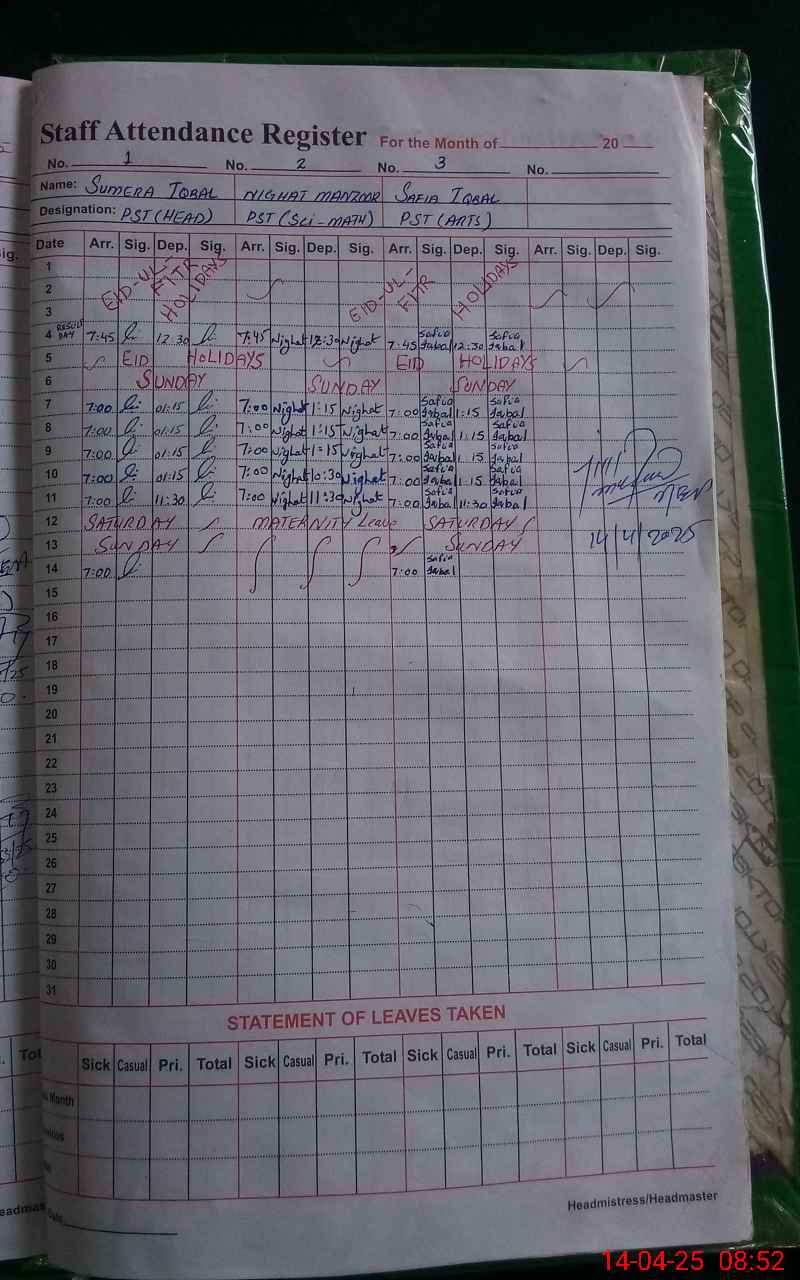 Staff Attendance Register For the Month of 20
No. 1 No. 2 No. 3 No.
Name: SUMERA IQBAL NIGHAT MANZOOR SAFIA IQBAL
Designation: PST (HEAD) PST (Sci-MATH) PST (ARTS)
Date Arr. Sig. Dep. Sig. Arr. Sig. Dep. Sig. Arr. Sig. Dep. Sig. Arr. Sig. Dep. Sig.
1
2 EID-UL-FITR HOLIDAYS EID-UL-FITR HOLIDAYS
3
4 RESULT DAY 7:45 12:30 7:45 Nighat 12:30 Nighat 7:45 Safia Iqbal 12:30 Safia Iqbal
5 EID HOLIDAYS EID HOLIDAYS
6 SUNDAY SUNDAY SUNDAY
7 7:00 01:15 7:00 Nighat 1:15 Nighat 7:00 Safia Iqbal 1:15 Safia Iqbal
8 7:00 01:15 7:00 Nighat 1:15 Nighat 7:00 Safia Iqbal 1:15 Safia Iqbal
9 7:00 01:15 7:00 Nighat 1:15 Nighat 7:00 Safia Iqbal 1:15 Safia Iqbal
10 7:00 01:15 7:00 Nighat 10:30 Nighat 7:00 Safia Iqbal 1:15 Safia Iqbal
11 7:00 11:30 7:00 Nighat 11:30 Nighat 7:00 Safia Iqbal 11:30 Safia Iqbal
12 SATURDAY MATERNITY Leave SATURDAY
13 SUNDAY SUNDAY 14/4/2025
14 7:00 7:00 Safia Iqbal
15
16
17
18
19
20
21
22
23
24
25
26
27
28
29
30
31
STATEMENT OF LEAVES TAKEN
Sick Casual Pri. Total Sick Casual Pri. Total Sick Casual Pri. Total Sick Casual Pri. Total
Month
Headmistress/Headmaster
14-04-25 08:52